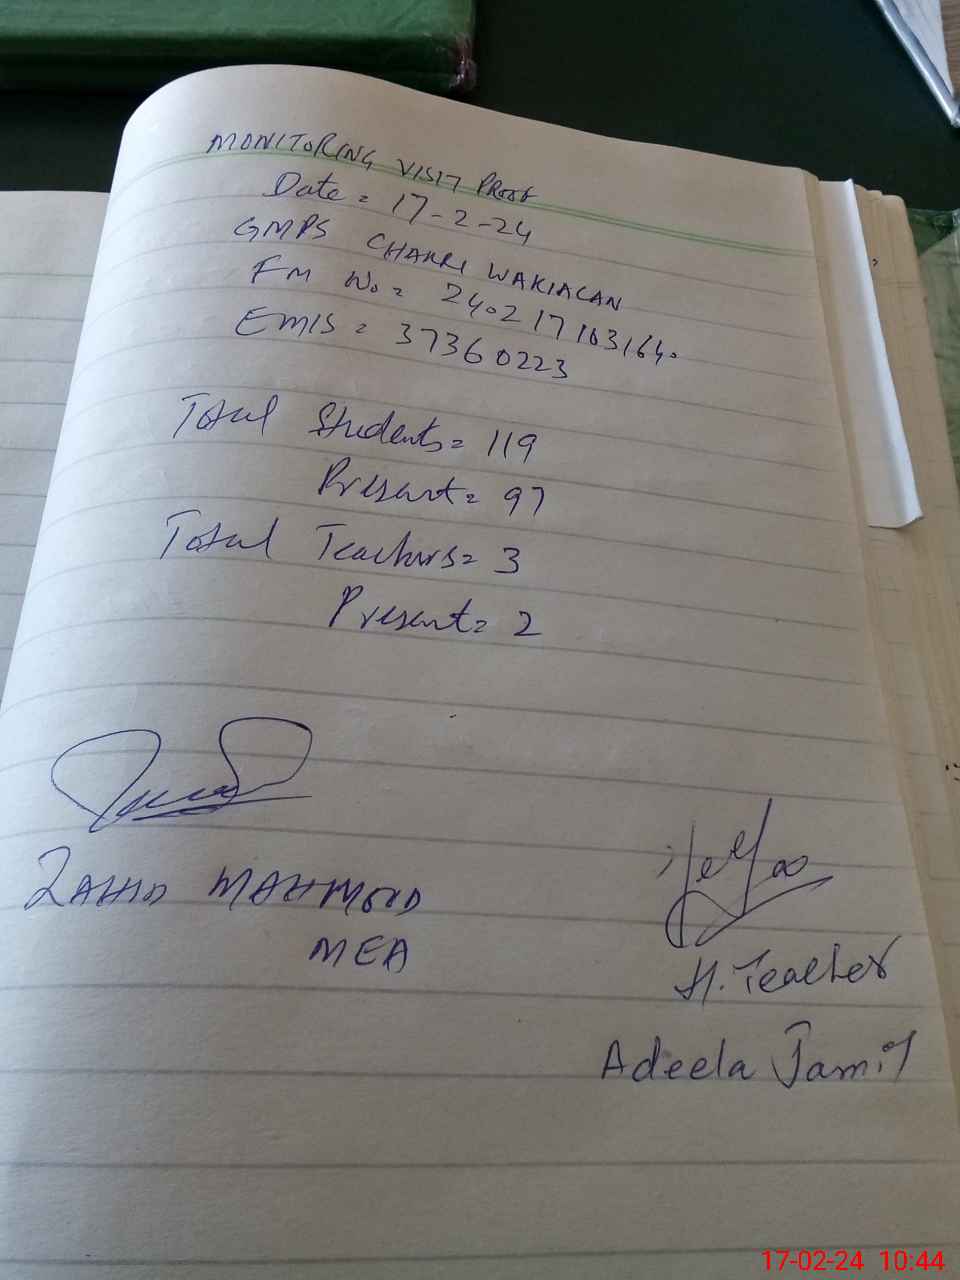 MONITORING VISIT PROOF
Date = 17-2-24
GMPS CHAKRI WAKIACAN
FM No = 240217103164
EMIS = 37360223
Total Students = 119
Present = 97
Total Teachers = 3
Present = 2
ZAHID MAHMOOD
MEA
H. Teacher
Adeela Jamil
17-02-24 10:44